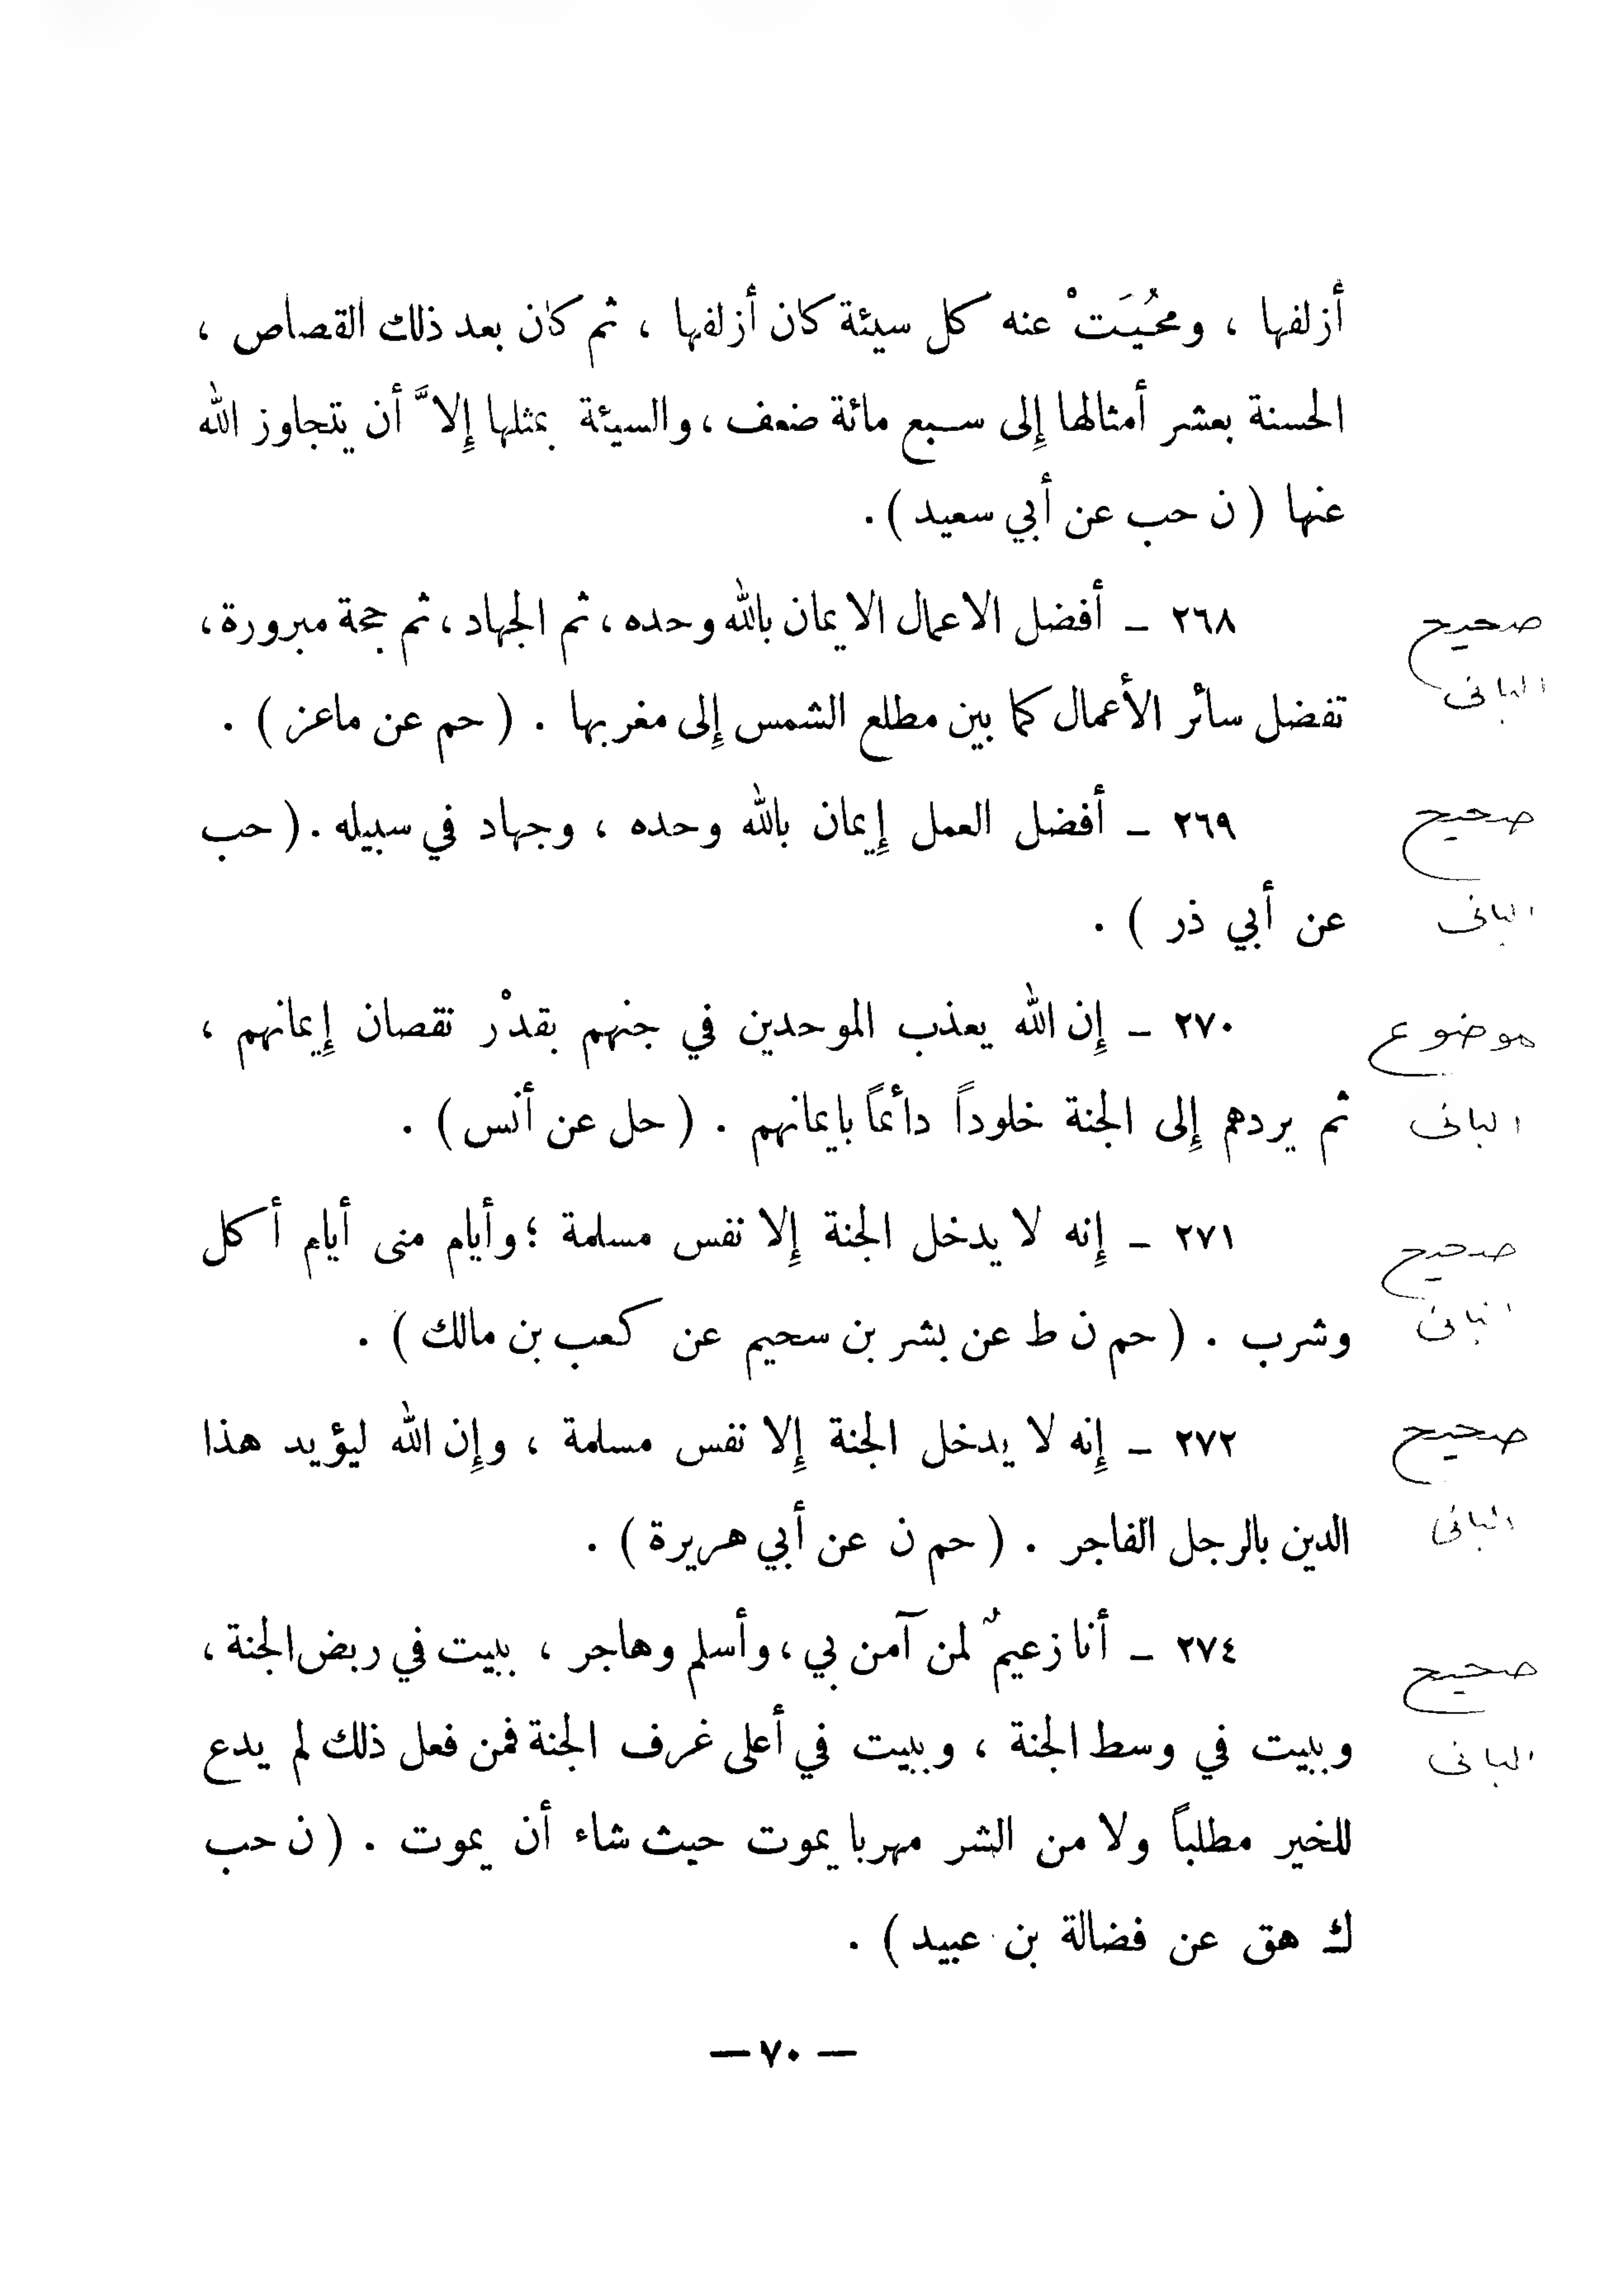 أزلفها ، ومحُيَتْ عنه كل سيئة كان أزلفها ، ثم كان بعد ذلك القصاص ،
الحسنة بعشر أمثالها إِلى سبع مائة ضعف ، والسيئة بمثلها إِلاَّ أن يتجاوز الله
عنها ( ن حب عن أبي سعيد ) .
٢٦٨ ـ أفضل الاعمال الايمان بالله وحده ، ثم الجهاد ، ثم حجة مبرورة ،
صحيح
الباني
تفضل سائر الأعمال كما بين مطلع الشمس إِلى مغربها . ( حم عن ماعز ) .
٢٦٩ ـ أفضل العمل إِيمان بالله وحده ، وجهاد في سبيله . ( حب
صحيح
عن أبي ذر ) .
الباني
٢٧٠ ـ إِن الله يعذب الموحدين في جنهم بقدْر نقصان إِيمانهم ،
موضوع
ثم يردهم إِلى الجنة خلوداً دائماً بايمانهم . ( حل عن أنس ) .
الباني
٢٧١ ـ إِنه لا يدخل الجنة إِلا نفس مسلمة ؛ وأيام منى أيام أكل
صحيح
وشرب . ( حم ن ط عن بشر بن سحيم عن كعب بن مالك ) .
الباني
٢٧٢ ـ إِنه لا يدخل الجنة إِلا نفس مسلمة ، وإِن الله ليؤيد هذا
صحيح
الدين بالرجل الفاجر . ( حم ن عن أبي هريرة ) .
الباني
٢٧٤ ـ أنا زعيمٌ لمن آمن بي ، وأسلم وهاجر ، ببيت في ربض الجنة ،
صحيح
وببيت في وسط الجنة ، وببيت في أعلى غرف الجنة فمن فعل ذلك لم يدع
الباني
للخير مطلباً ولا من الشر مهربا يموت حيث شاء أن يموت . ( ن حب
ك هق عن فضالة بن عبيد ) .
— ٧٠ —